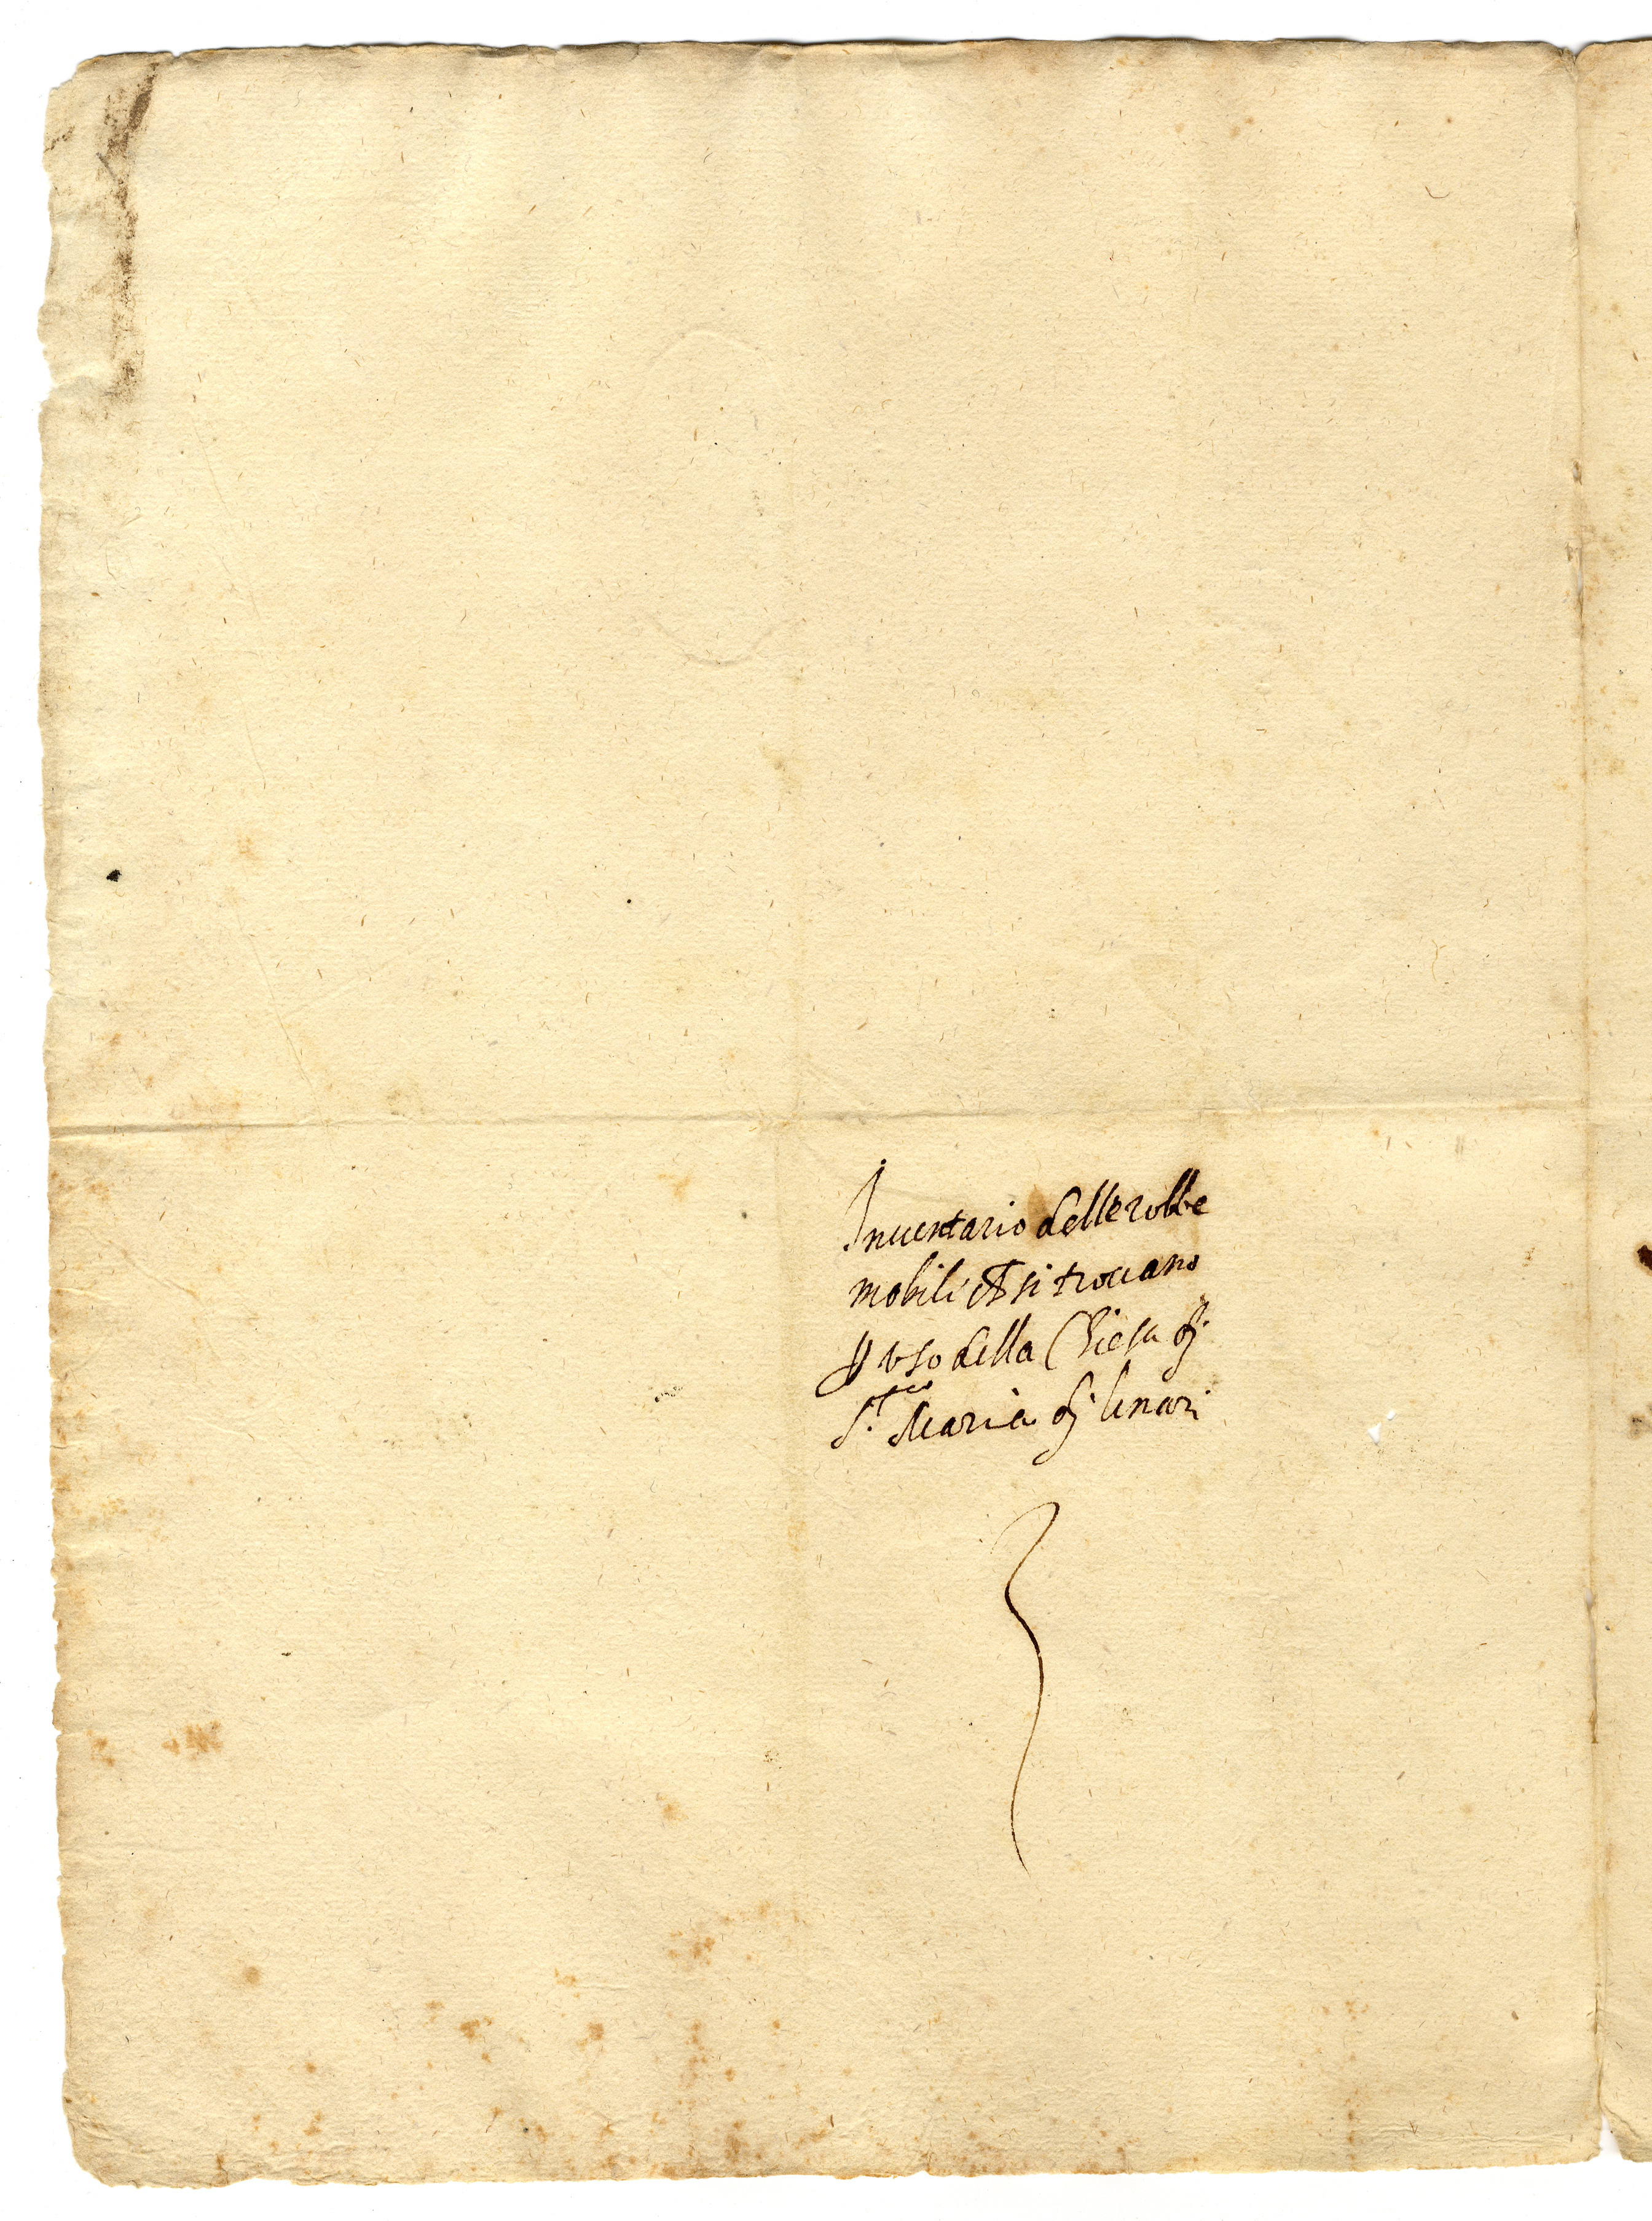 Inuentario delle robbe
mobili ch si trouano
p uso della Chiesa di
S.ta Maria di Linari